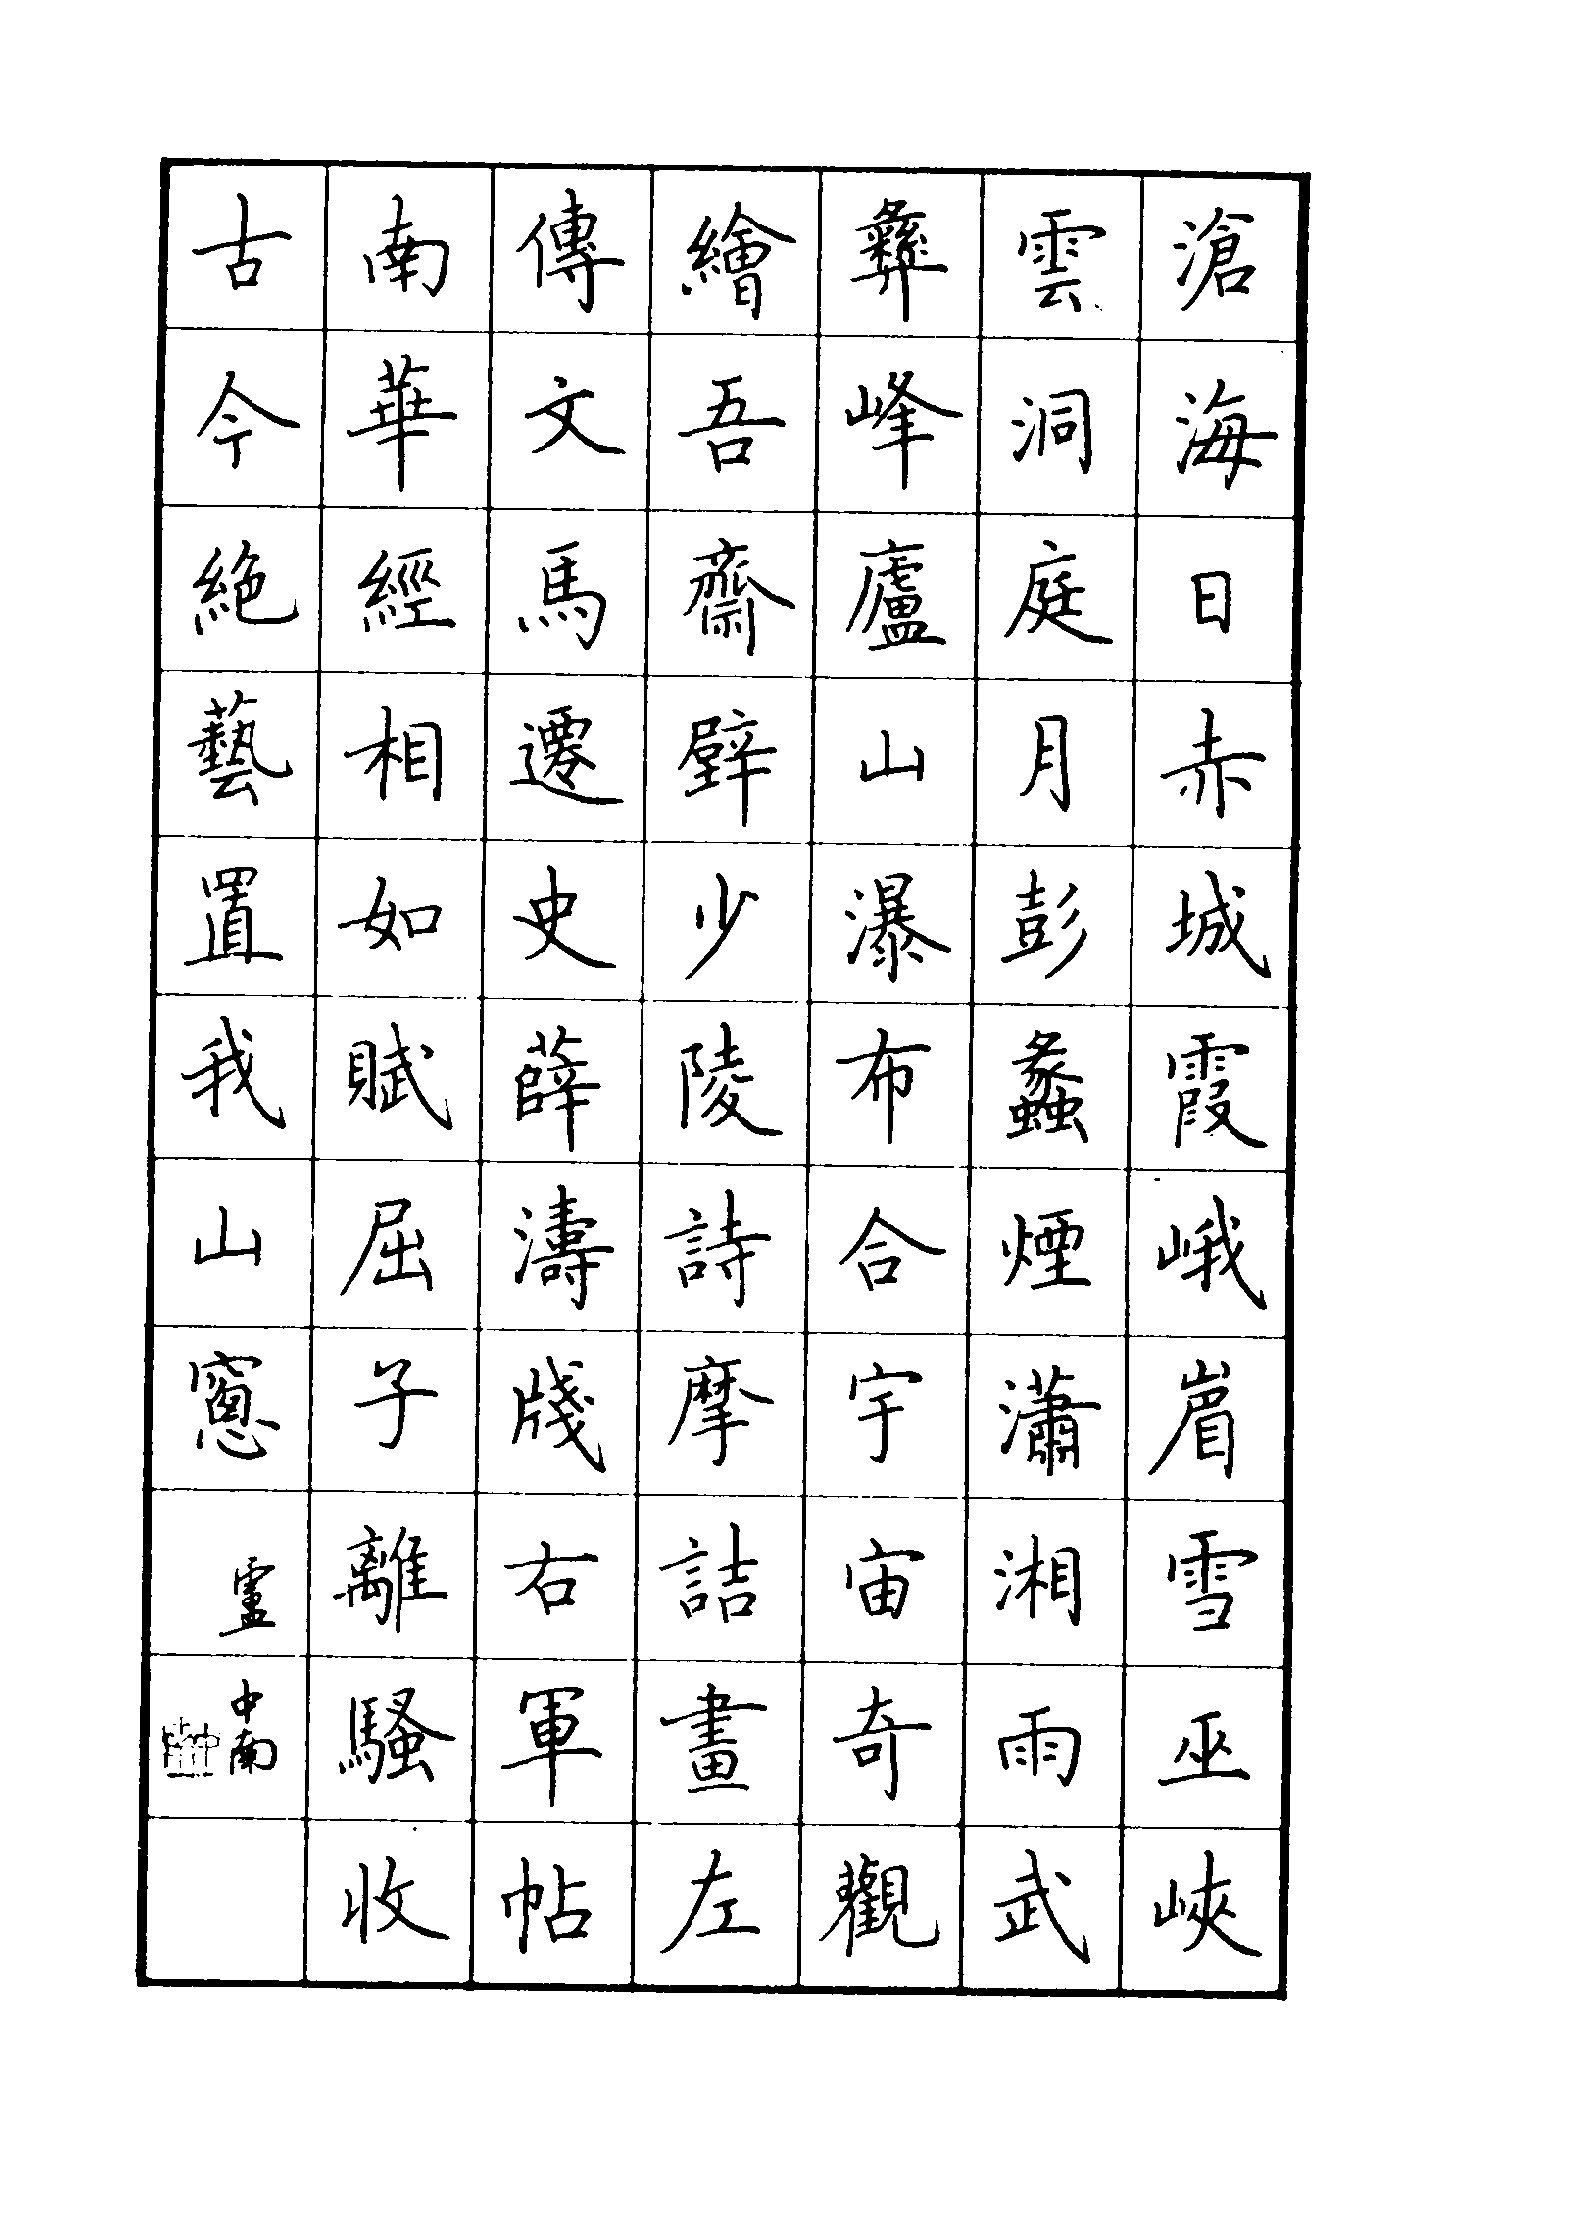 滄海日赤城霞峨眉雪巫峽
雲洞庭月彭蠡煙瀟湘雨武
彝峰廬山瀑布合宇宙奇觀
繪吾齋壁少陵詩摩詰畫左
傳文馬遷史薛濤牋右軍帖
南華經相如賦屈子離騷收
古今絕藝置我山窻
盧中南